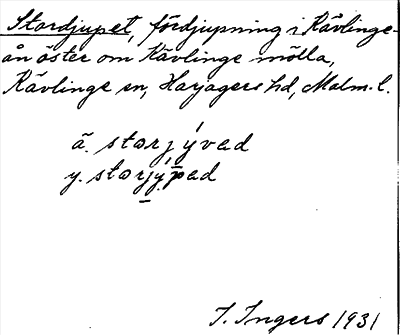 Stordjupet, fördjupning i Kävlinge-
ån öster om Kävlinge mölla,
Kävlinge sn, Harjagers hd, Malm. l.
ä. storjývad
y. storjýpad
I. Ingers 1931